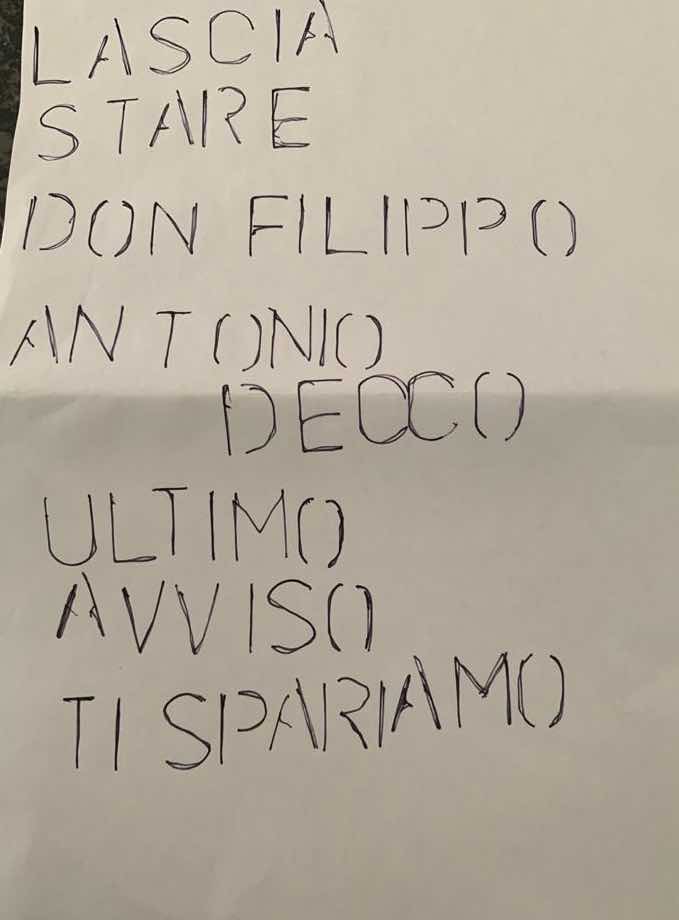 LASCIA
STARE
DON FILIPPO
ANTONIO
DECCO
ULTIMO
AVVISO
TI SPARIAMO